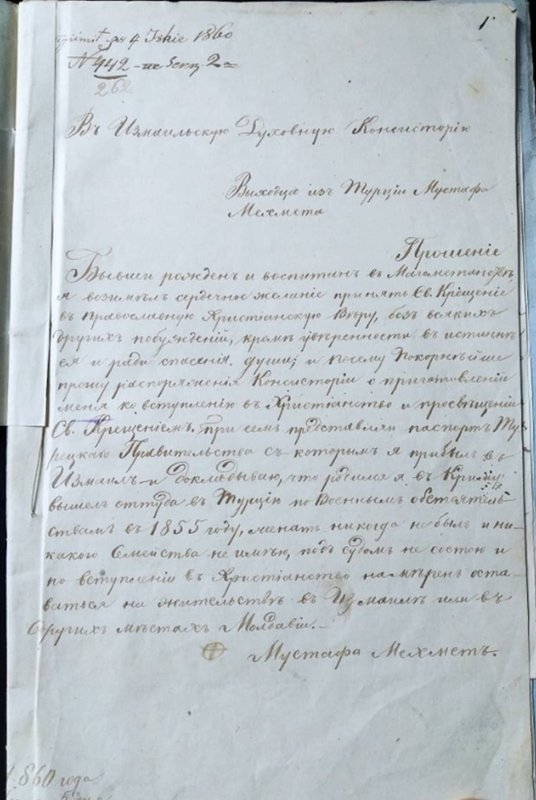 1
4 Iulie 1860
N 442 2
262
Въ Измаильскую Духовную Консисторію
Выходца изъ Турціи Мустафа
Мехмета
Прошеніе
Бывши рожденъ и воспитан въ Магометанств
я возимѣлъ сердечное желаніе принять Св. Крещеніе
въ православную Христіанскую Вѣру, безъ всякихъ
другихъ побужденій, кромѣ увѣренности въ истинѣ
ея и ради спасенія души; и посему Покорнѣйше
прошу распоряженія Консисторіи о приготовленіи
меня ко вступленію въ Христіанство и просвѣщеніи
Св. Крещеніемъ, при семъ представляя паспортъ Ту-
рецкаго Правительства съ которимъ я прибылъ въ
Измаилъ и докладываю, что родился я въ Криму
вышелъ оттуда въ Турцію по Военнымъ обстоятель-
ствамъ въ 1855 году, женатъ никогда не былъ и ни-
какого Семейства не имѣю, подъ судомъ не состою и
по вступленіи въ Христіанство намѣренъ оста-
ваться на жительствѣ въ Измаилѣ или въ
Другихъ мѣстахъ Молдавіи.
Мустафа Мехметъ.
1860 года